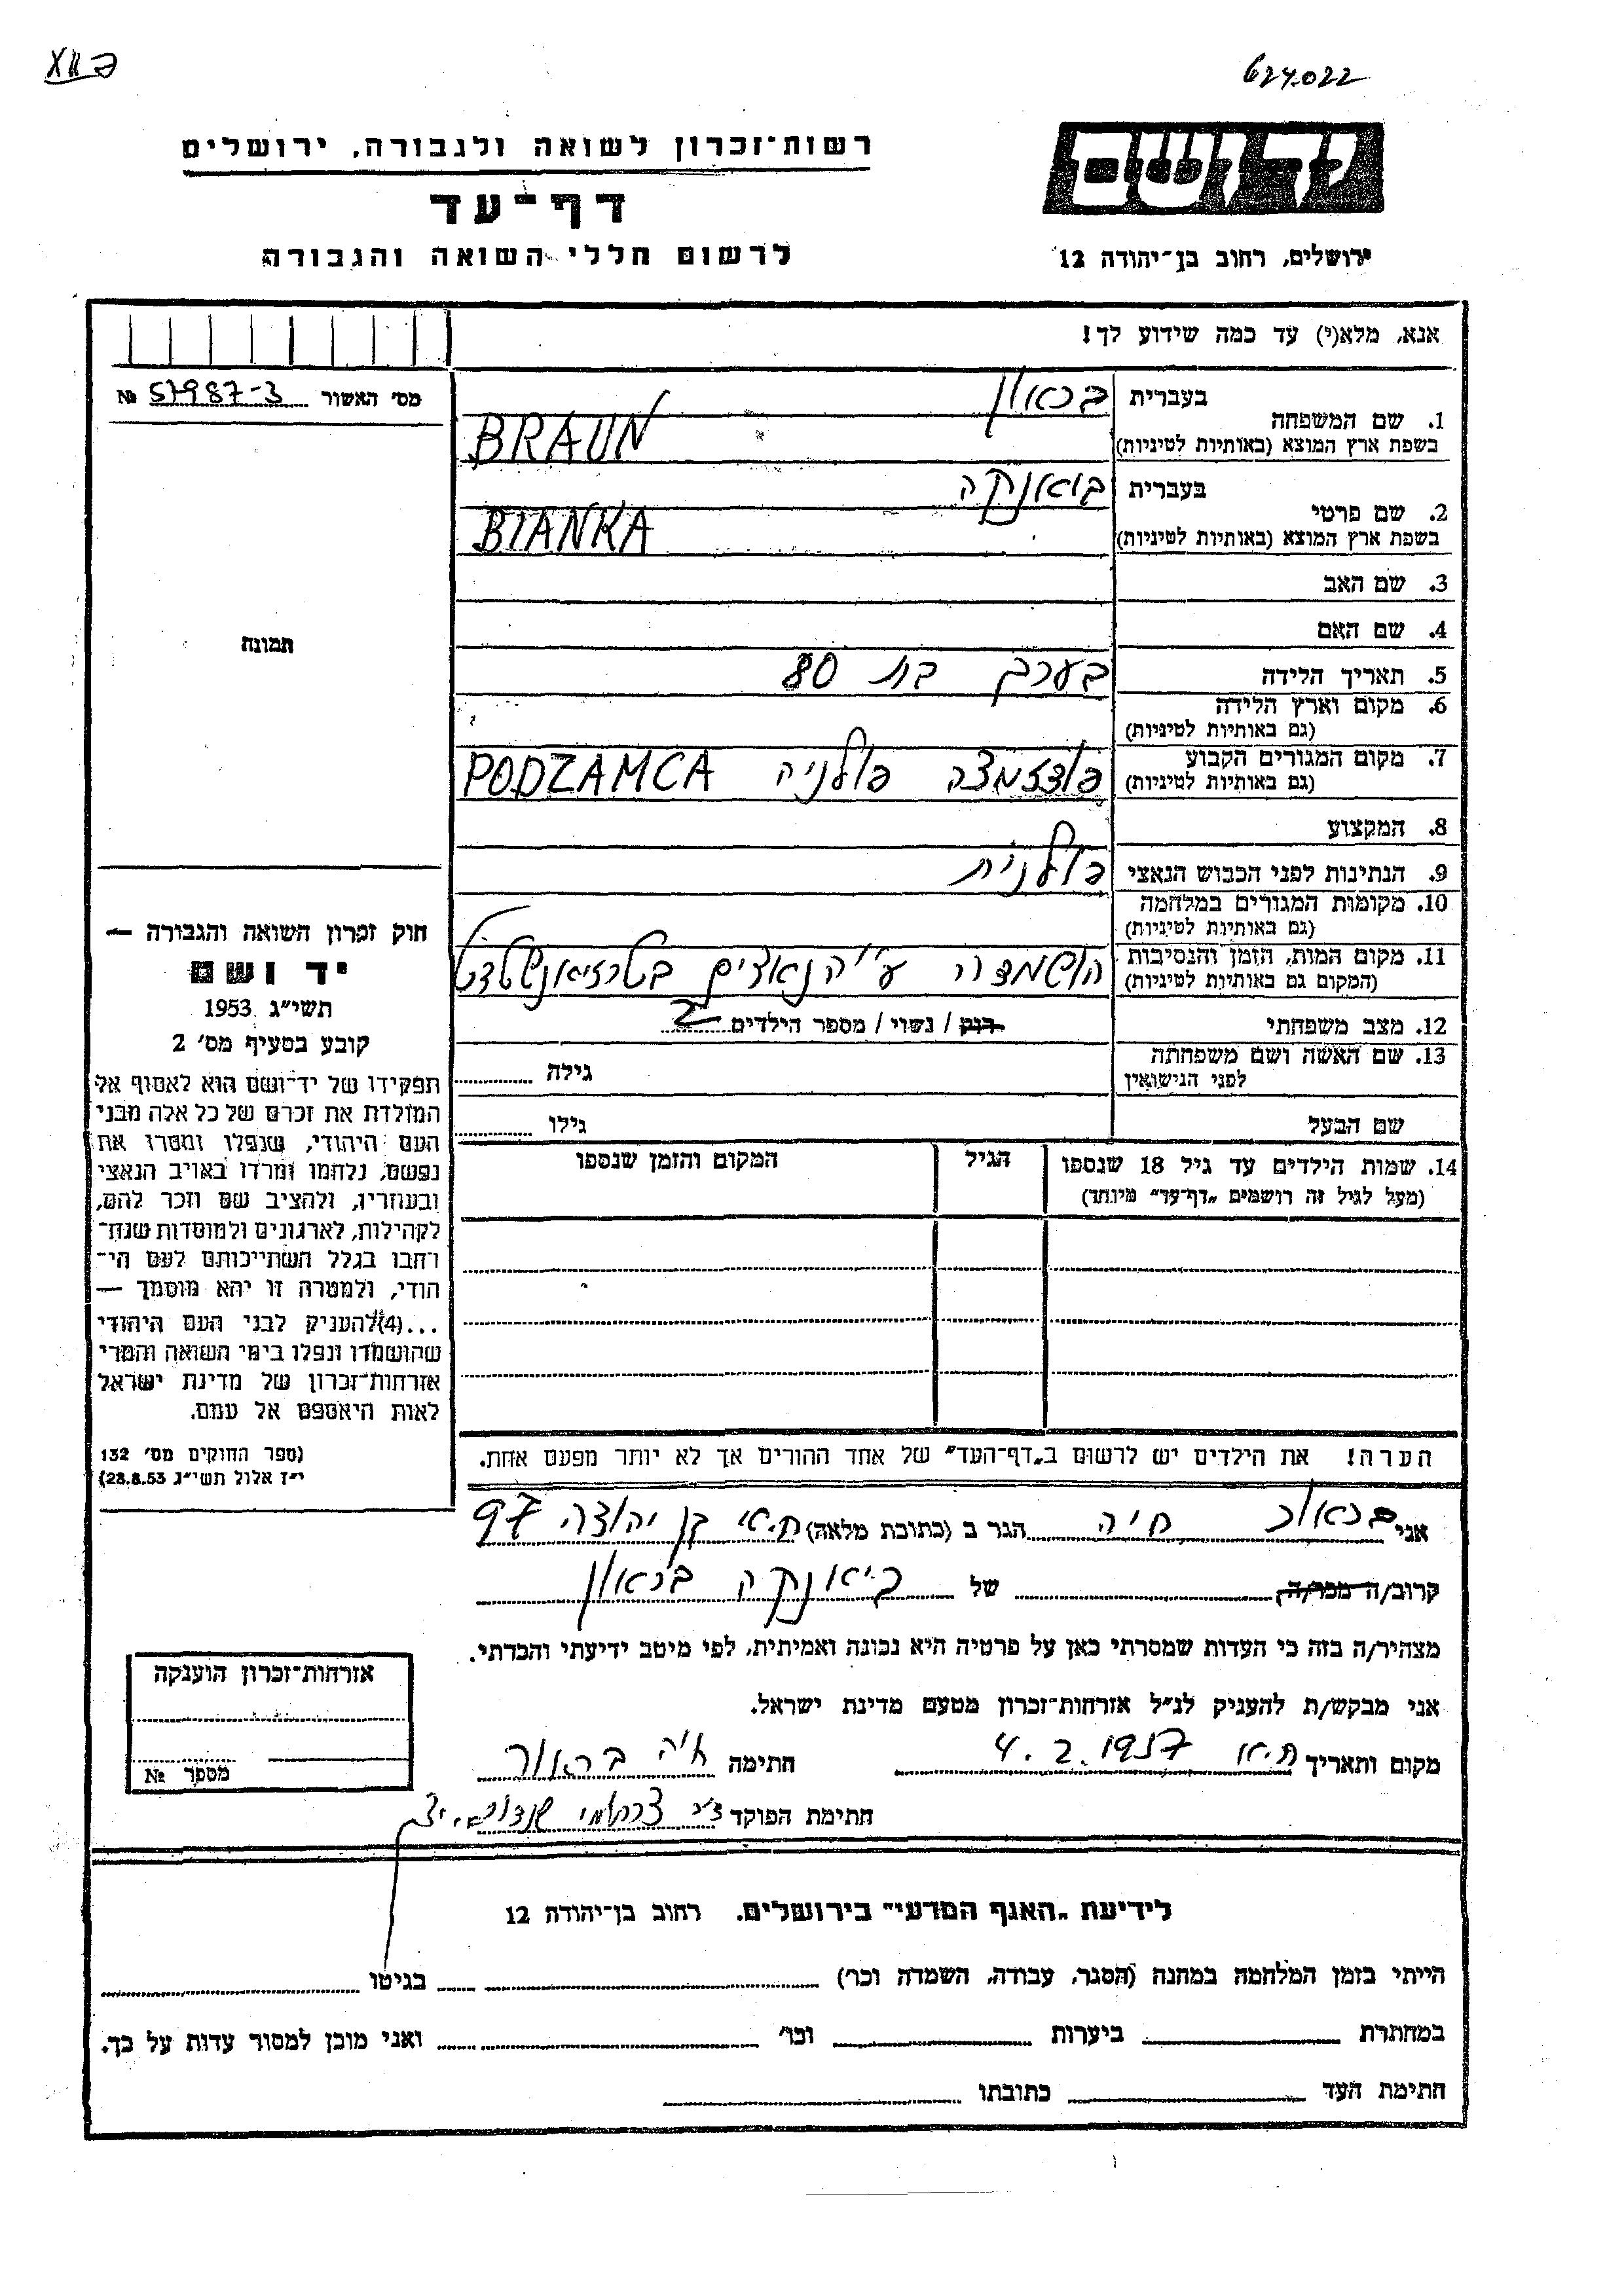 624022
יד ושם
ירושלים, רחוב בן־יהודה 12
רשות־זכרון לשואה ולגבורה, ירושלים
דף־עד
לרשום חללי השואה והגבורה
אנא, מלא(י) עד כמה שידוע לך!
1. שם המשפחה
בעברית
בראון
בשפת ארץ המוצא (באותיות לטיניות)
BRAUN
2. שם פרטי
בעברית
ביאנקה
בשפת ארץ המוצא (באותיות לטיניות)
BIANKA
3. שם האב
4. שם האם
5. תאריך הלידה
בערך בת 80
6. מקום וארץ הלידה
(גם באותיות לטיניות)
7. מקום המגורים הקבוע
(גם באותיות לטיניות)
פודזמצה פולניה PODZAMCA
8. המקצוע
9. הנתינות לפני הכבוש הנאצי
פולנית
10. מקומות המגורים במלחמה
(גם באותיות לטיניות)
11. מקום המות, הזמן והנסיבות
(המקום גם באותיות לטיניות)
הושמדה ע"י הנאצים בטרזיאנשטדט
12. מצב משפחתי
רוק / נשוי / מספר הילדים 2
13. שם האשה ושם משפחתה
לפני הנישואין
גילה
שם הבעל
גילו
14. שמות הילדים עד גיל 18 שנספו
(מעל לגיל זה רושמים „דף־עד" מיוחד)
הגיל
המקום והזמן שנספו
הערה! את הילדים יש לרשום ב„דף־העד" של אחד ההורים אך לא יותר מפעם אחת.
מס' האשור 57987-3 №
תמונה
חוק זכרון השואה והגבורה —
יד ושם
תשי"ג 1953
קובע בסעיף מס' 2
תפקידו של יד־ושם הוא לאסוף אל
המולדת את זכרם של כל אלה מבני
העם היהודי, שנפלו ומסרו את
נפשם, נלחמו ומרדו באויב הנאצי
ובעוזריו, ולהציב שם וזכר להם,
לקהילות, לארגונים ולמוסדות שנח־
רחבו בגלל השתייכותם לעם הי־
הודי, ולמטרה זו יהא מוסמך —
...(4) להעניק לבני העם היהודי
שהושמדו ונפלו בימי השואה והמרי
אזרחות־זכרון של מדינת ישראל
לאות היאספם אל עמם.
(ספר החוקים מס' 132
י"ז אלול תשי"ג 28.8.53)
אני בראור חיה הגר ב (כתובת מלאה) ת.א. בן יהודה 97
קרוב/ה מכר/ה של ביאנקה בראון
מצהיר/ה בזה כי העדות שמסרתי כאן על פרטיה היא נכונה ואמיתית, לפי מיטב ידיעתי והכרתי.
אני מבקש/ת להעניק לנ"ל אזרחות־זכרון מטעם מדינת ישראל.
מקום ותאריך ת.א. 4.2.1957 חתימה חיה בראור
חתימת הפוקד
אזרחות־זכרון הוענקה
מספר №
לידיעת „האגף המדעי" בירושלים, רחוב בן־יהודה 12
הייתי בזמן המלחמה במחנה (הסגר, עבודה, השמדה וכר') בגיטו
במחתרת ביערות וכר' ואני מוכן למסור עדות על כך.
חתימת העד כתובתו